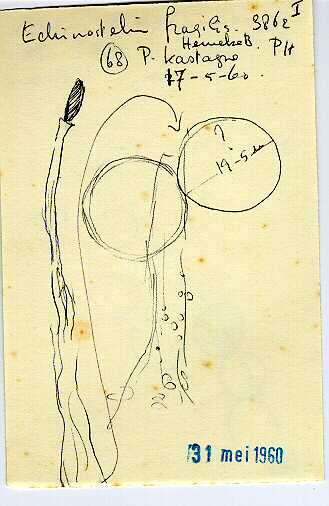 Echinostelium fragilis. 3862 I
HemelseB. PH
(68) P. kastagne
17-5-60.
?
19-5
31 mei 1960